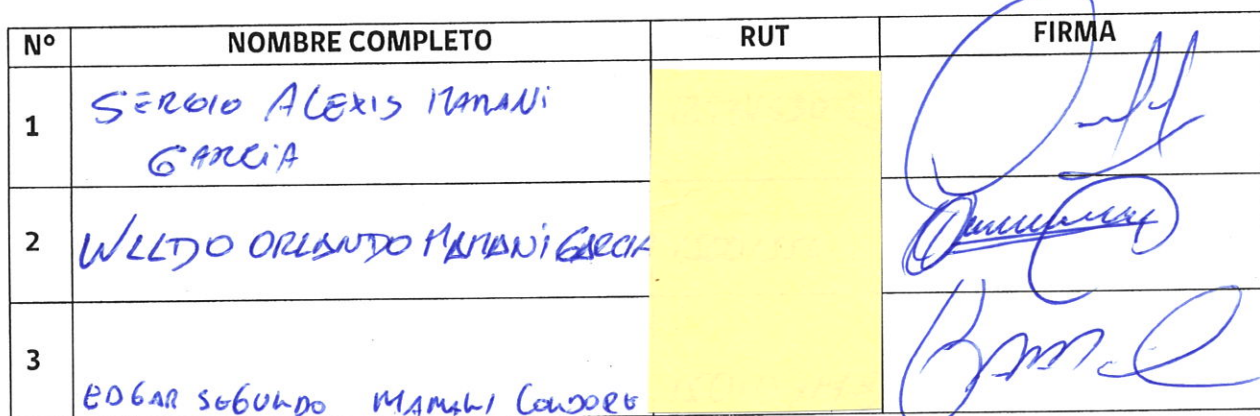 Nº NOMBRE COMPLETO RUT FIRMA
1 SERGIO ALEXIS MAMANi
GARCiA
2 ORLANDO MAMANi GARCIA
3
EDGAR SEGUNDO MAMANI CONDORE